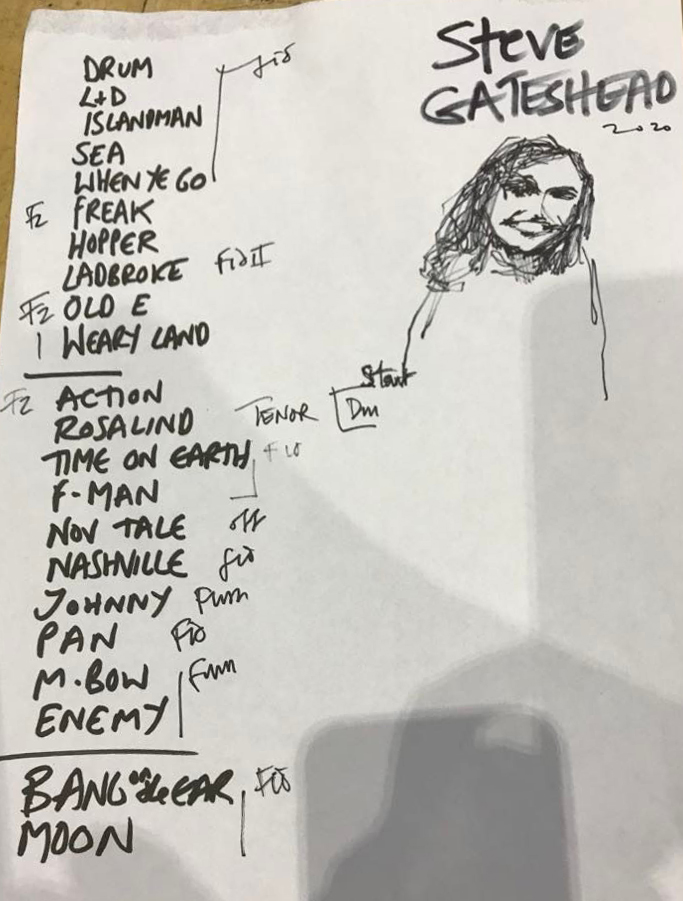 STEVE
GATESHEAD
2020
DRUM fid
L+D
ISLANDMAN
SEA
WHEN YE GO
F2 FREAK
HOPPER
LADBROKE Fid II
F2 OLD E
1 WEARY LAND
F2 ACTION
ROSALIND TENOR Start Dm
TIME ON EARTH Fid
F-MAN
NOV TALE off
NASHVILLE fid
JOHNNY
PAN Fid
M.BOW
ENEMY
BANG on the EAR Fid
MOON